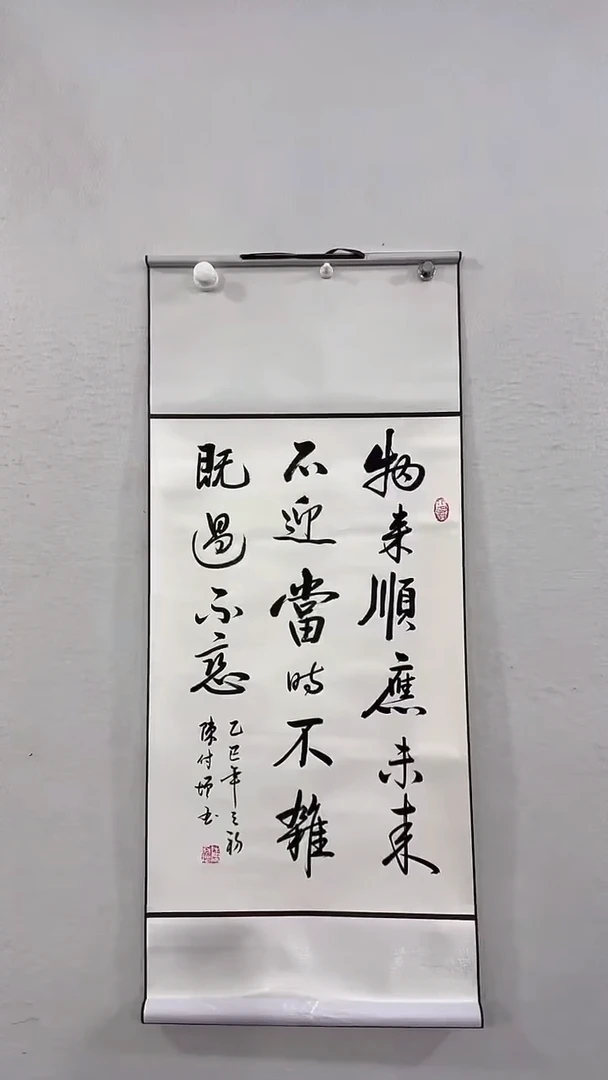 物来順應未来
不迎當時不雜
既過不戀
乙巳年之初
陳付㛃书